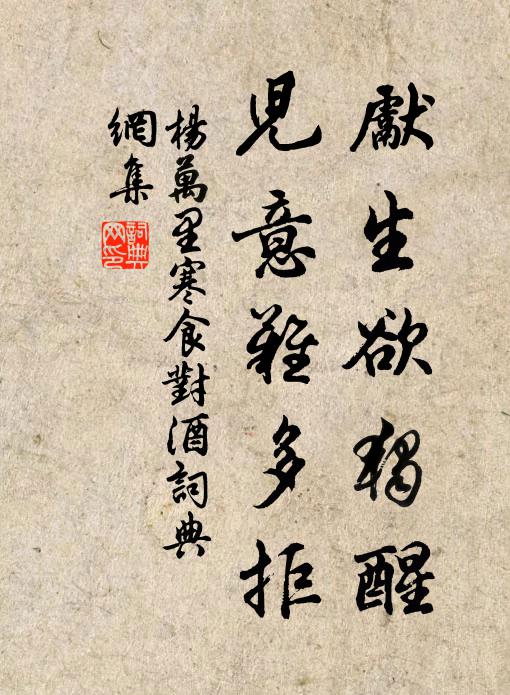 獻生欲獨醒
兒意難多拒
楊萬里寒食對酒詞典
網集
詞典
网印